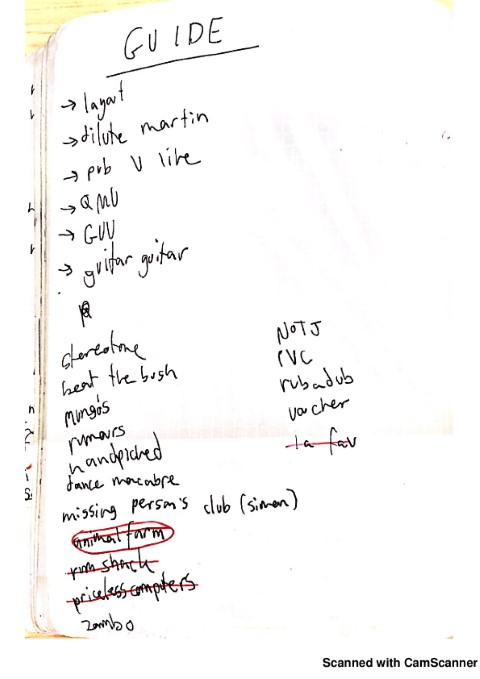 GUIDE
→ layout
→ dilute martin
→ pub V like
→ QMU
→ GUU
→ guitar guitar
stereotone
beat the bush
Mungo's
rumours
handpicked
dance macabre
missing person's club (simon)
animal farm
rum shack
priceless computers
zambo
NOTJ
PVC
rubadub
voucher
la fav
Scanned with CamScanner